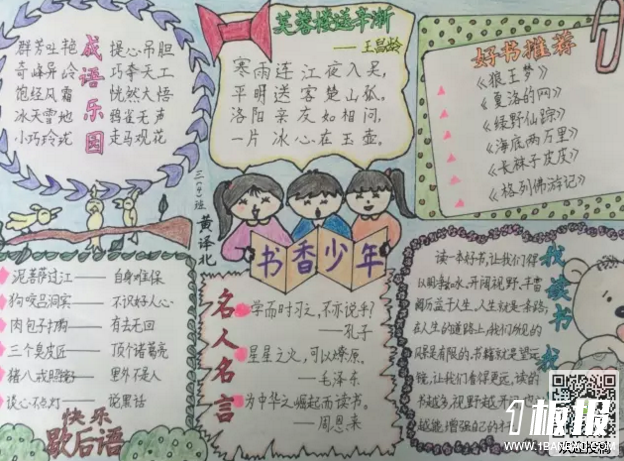 成语乐园
群芳吐艳 提心吊胆
奇峰异岭 巧夺天工
饱经风霜 恍然大悟
冰天雪地 鸦雀无声
小巧玲珑 走马观花
芙蓉楼送辛渐
——王昌龄
寒雨连江夜入吴,
平明送客楚山孤。
洛阳亲友如相问,
一片冰心在玉壶。
好书推荐
《狼王梦》
《夏洛的网》
《绿野仙踪》
《海底两万里》
《长袜子皮皮》
《格列佛游记》
三(4)班 黄译北
书香少年
泥菩萨过江——自身难保
狗咬吕洞宾——不识好人心
肉包子打狗——有去无回
三个臭皮匠——顶个诸葛亮
猪八戒照镜子——里外不是人
谈心不点灯——说黑话
快乐
歇后语
名人名言
学而时习之,不亦说乎?
——孔子
星星之火,可以燎原。
——毛泽东
为中华之崛起而读书。
——周恩来
我读书
读一本好书,让我们得
在人生的道路上,我们所见的
风景是有限的,书籍就是望远
镜,让我们看得更远,读的
书越多,视野越开
越能增强自己的
1板报
WWW.1BANBAO.COM